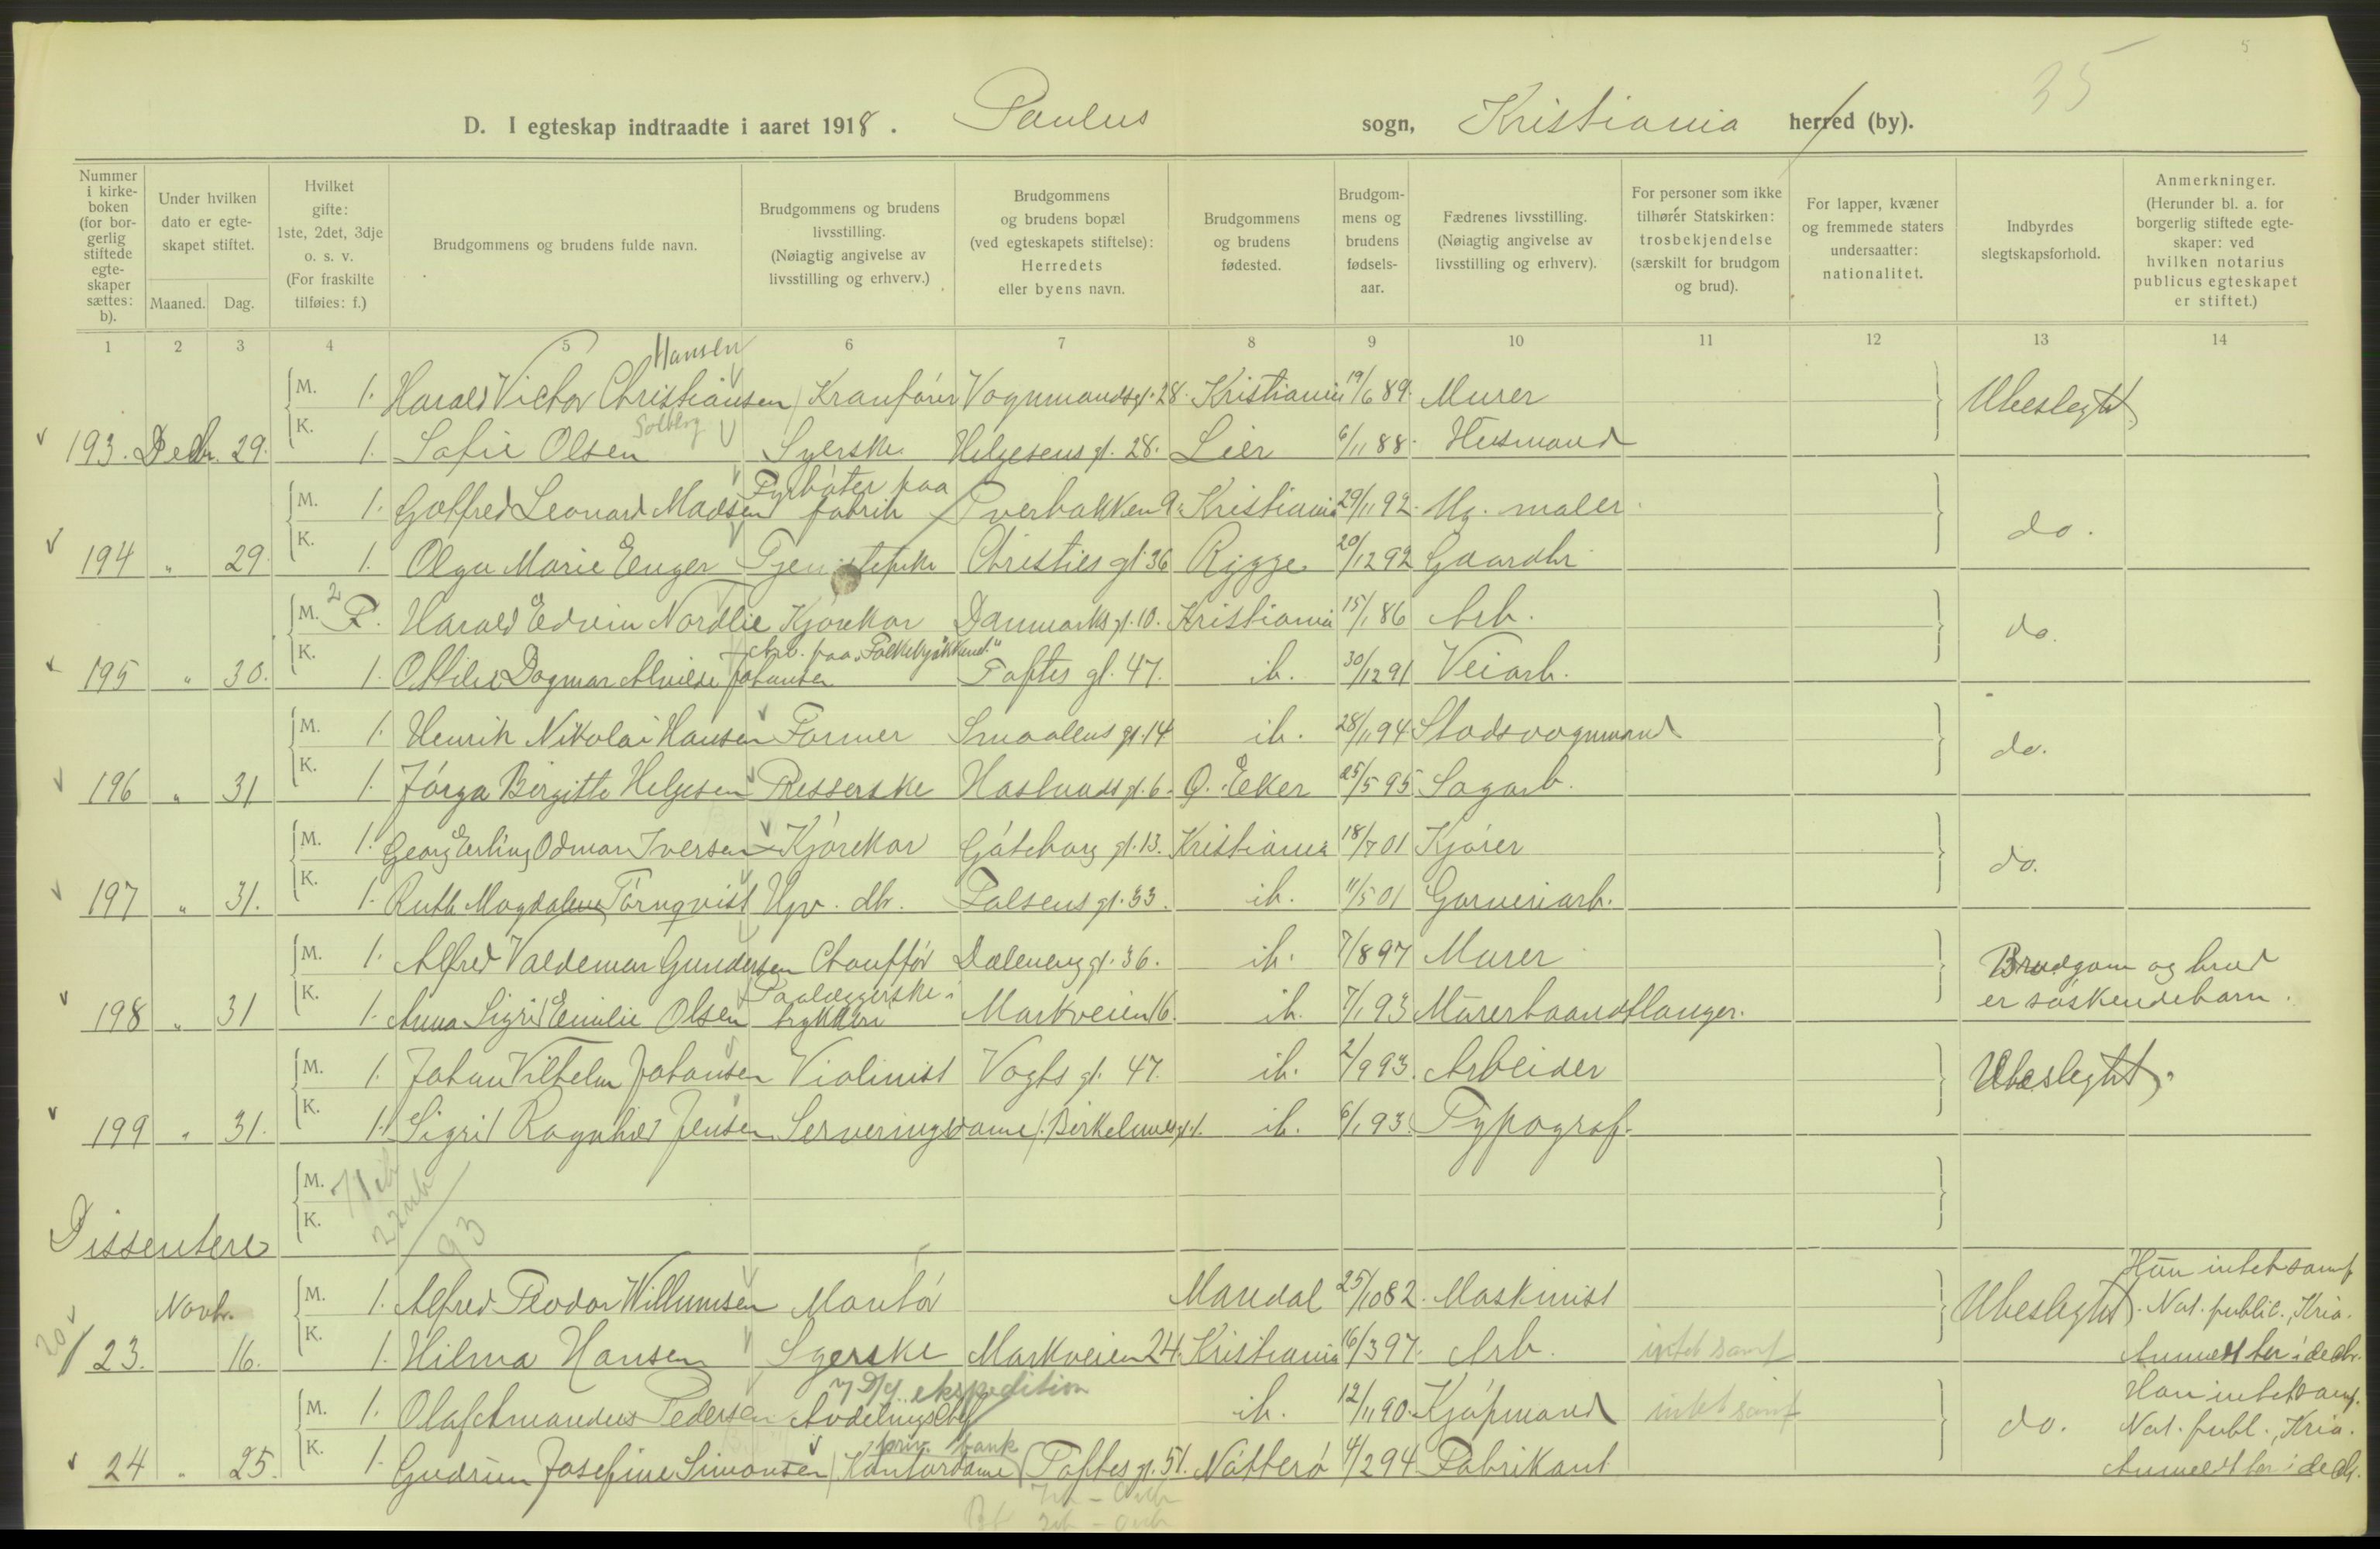 35
5
D. I egteskap indtraadte i aaret 1918. Paulus sogn, Kristiania herred (by).
Nummer i kirkeboken (for borgerlig stiftede egteskaper sættes: b).
Under hvilken dato er egteskapet stiftet.
Maaned. Dag.
Hvilket gifte: 1ste, 2det, 3dje o. s. v. (For fraskilte tilføies: f.)
Brudgommens og brudens fulde navn.
Brudgommens og brudens livsstilling. (Nøiagtig angivelse av livsstilling og erhverv.)
Brudgommens og brudens bopæl (ved egteskapets stiftelse): Herredets eller byens navn.
Brudgommens og brudens fødested.
Brudgommens og brudens fødselsaar.
Fædrenes livsstilling. (Nøiagtig angivelse av livsstilling og erhverv).
For personer som ikke tilhører Statskirken: trosbekjendelse (særskilt for brudgom og brud).
For lapper, kvæner og fremmede staters undersaatter: nationalitet.
Indbyrdes slegtskapsforhold.
Anmerkninger. (Herunder bl. a. for borgerlig stiftede egteskaper: ved hvilken notarius publicus egteskapet er stiftet.)
1 2 3 4 5 6 7 8 9 10 11 12 13 14
Hansen
M. 1. Harald Victor Christiansen Kranfører Vognmandsgt. 28. Kristiania 19/6 89. Murer Ubeslegtet
Solberg
193. Decbr. 29. K. 1. Sofie Olsen Syerske Helgesens gt. 28. Lier 6/11 88. Husmand
Fyrbøter paa
M. 1. Gotfred Leonard Madsen fabrik Tverbakken 9. Kristiania 29/11 92. Ug. maler. do.
194 " 29. K. 1. Olga Marie Enger Tjenestepike Christies gt. 36 Rygge 20/12 92 Gaardbr.
M. 2 Harald Edvin Nordlie Kjørekar Danmarks gt. 10. Kristiania 15/1 86 Arb. do.
Arb. paa "Folkekjøkkenet"
195 " 30. K. 1. Ottilie Dagmar Alvilde Johansen Toftes gt. 47. ib. 30/12 91 Veiarb.
M. 1. Henrik Nikolai Hansen Former Smaalens gt. 14 ib. 28/11 94 Stadsvognmand do.
196 " 31 K. 1. Jørga Birgitte Helgesen Presserske Haslunds gt. 6. Ø. Eker 25/5 95 Sagarb.
M. 1. Georg Erling Odmar Iversen Kjørekar Gøteborg gt. 13. Kristiania 18/7 01 Kjører do.
197 " 31. K. 1. Ruth Magdalene Törnqvist Hjv. dtr. Falsens gt. 33. ib. 11/5 01 Garveriarb.
M. 1. Alfred Valdemar Gundersen Chauffør Dæleneng gt. 36. ib. 7/8 97 Murer Brudgom og brud
Paalæggerske i
198 " 31 K. 1. Anna Sigrid Emilie Olsen trykkeri Markveien 16. ib. 7/1 93 Murerhaandtlanger. er søskendebarn.
M. 1. Johan Vilhelm Johansen Violinist Vogts gt. 47. ib. 2/9 93. Arbeider Ubeslegtet.
199 " 31. K. 1. Sigrid Ragnhild Jensen Serveringsdame Birkelunds gt. 1. ib. 6/1 93. Typograf.
M.
K.
93
Dissentere
Hun intet samf
Novbr. M. 1. Alfred Teodor Willumsen Montør Mandal 25/10 82. Maskinist Ubeslegtet. Not. public., Kria.
23. 16. K. 1. Hilma Hansen Syerske Markveien 24. Kristiania 16/3 97. Arb. intet samf Anmeldt her i decbr.
ekspedition
M. 1. Olaf Amandus Pedersen Avdelingschef ib. 12/11 90. Kjøpmand intet samf do. Han intet samf.
Not. publ., Kria.
priv. bank
24 " 25. K. 1. Gudrun Josefine Simonsen Kontordame Toftes gt. 51. Nøtterø 4/2 94 Fabrikant Anmeldt her i decbr.